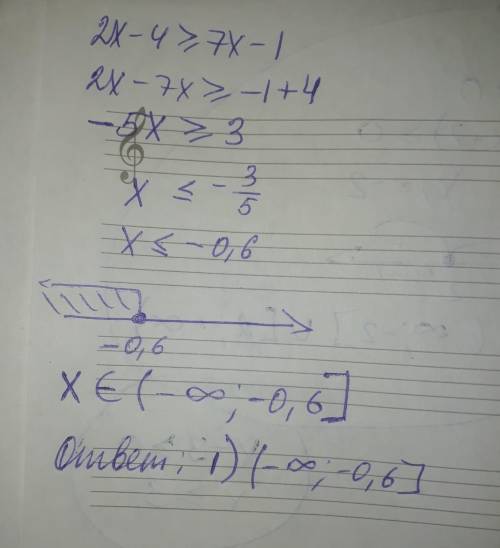 2x - 4 ≥ 7x - 1
2x - 7x ≥ -1 + 4
-5x ≥ 3
x ≤ -3/5
x ≤ -0,6
-0,6
x ∈ (-∞; -0,6]
Ответ: 1) (-∞; -0,6]